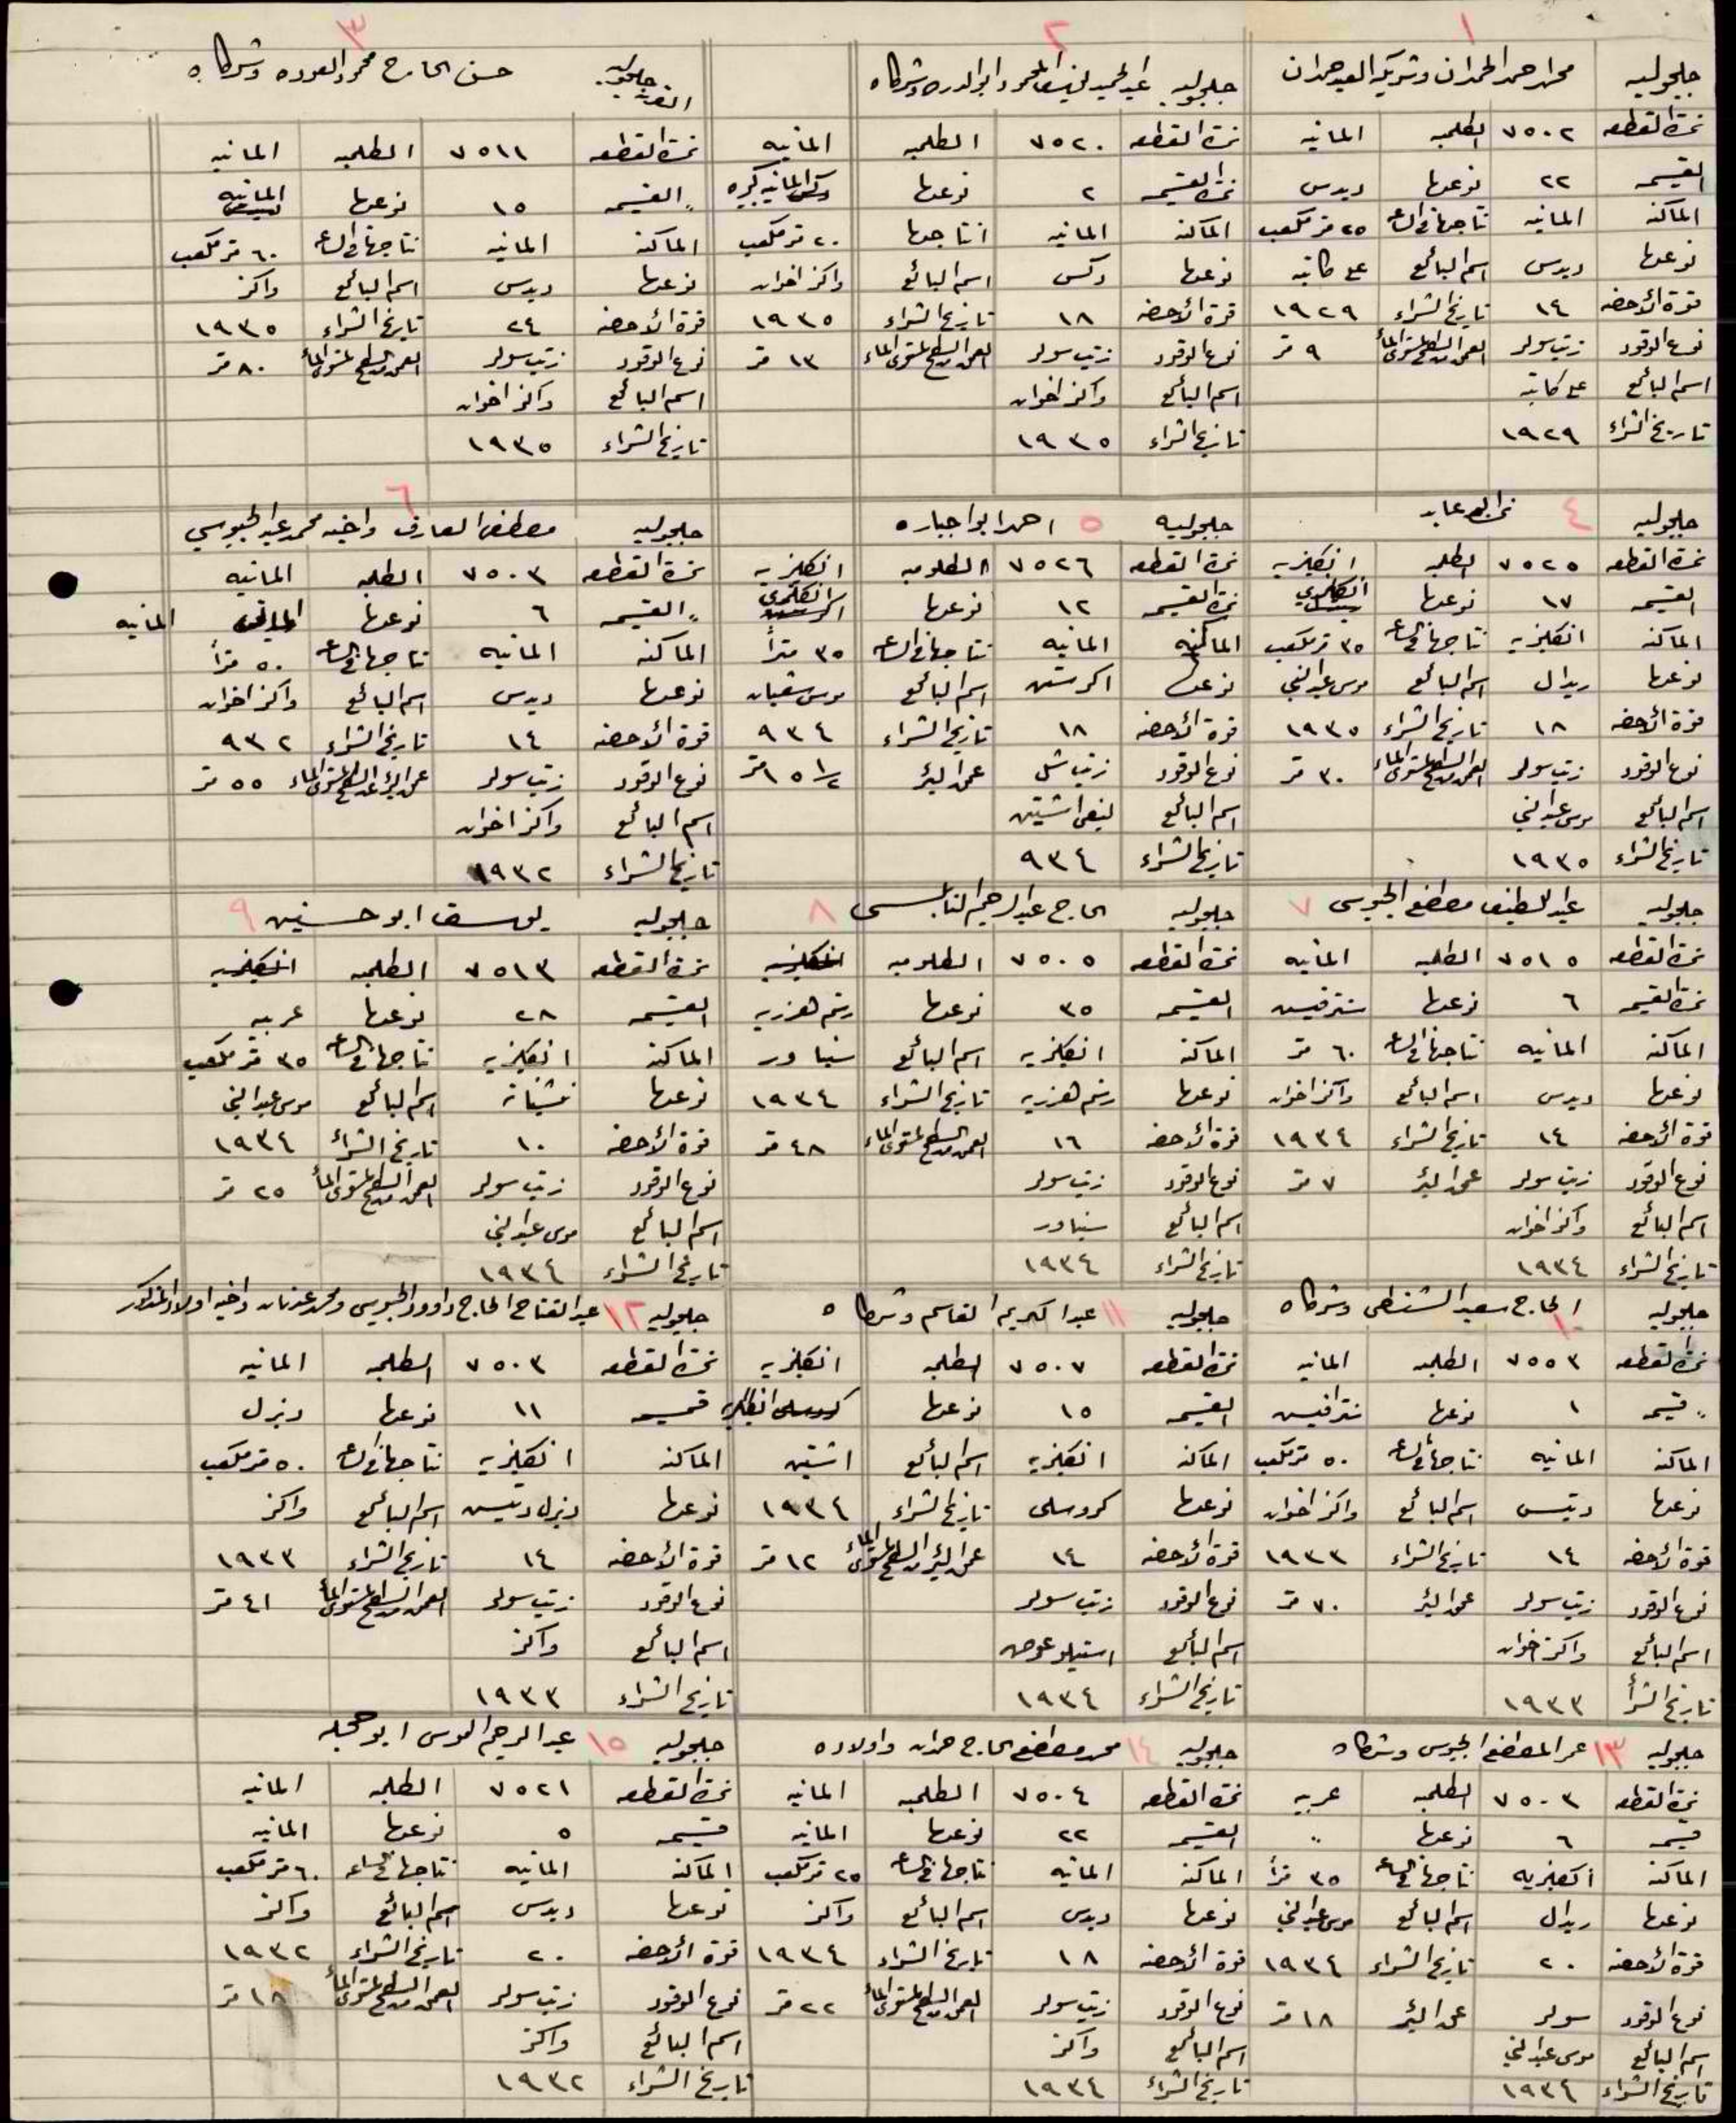 ١
جلجوليه محمد احمد الحمدان وشريكه العبد حمدان
نمرة القطعه ٧٥٠٢ الطلمبه المانيه
القسيمه ٢٢ نوعها ديدس
الماكنه المانيه نتاجها في الساعه ٢٥ متر مكعب
نوعها ديدس اسم البائع علي كاتبه
قوة الأحصنه ١٤ تاريخ الشراء ١٩٢٩
نوع الوقود زيت سولر العمق من السطح لمستوى الماء ٩ متر
اسم البائع علي كاتبه
تاريخ الشراء ١٩٢٩
٢
جلجوليه عبد الحميد المحمود ابو الدره وشركاه
نمرة القطعه ٧٥٢٠ الطلمبه المانيه
نمرة القسيمه ٢ نوعها دكس المانيه كبيره
الماكنه المانيه انتاجها ٢٠ متر مكعب
نوعها دكس اسم البائع واكنر اخوان
قوة الأحصنه ١٨ تاريخ الشراء ١٩٣٥
نوع الوقود زيت سولر العمق من السطح لمستوى الماء ١٣ متر
اسم البائع واكنر اخوان
تاريخ الشراء ١٩٣٥
٣
جلجوليه حسن الحاج محمود العوده وشركاه
نمرة القطعه ٧٥١١ الطلمبه المانيه
" القسيمه ١٥ نوعها المانيه
الماكنه المانيه نتاجها في الساعه ٦٠ متر مكعب
نوعها ديدس اسم البائع واكنر
قوة الأحصنه ٢٤ تاريخ الشراء ١٩٣٥
نوع الوقود زيت سولر العمق من السطح لمستوى الماء ٨٠ متر
اسم البائع واكنر اخوان
تاريخ الشراء ١٩٣٥
٤
جلجوليه عابد
نمرة القطعه ٧٥٢٥ الطلمبه انكليزيه
القسيمه ١٧ نوعها انكليزي
الماكنه انكليزيه نتاجها في الساعه ٣٥ متر مكعب
نوعها ريدال اسم البائع موسى عبد النبي
قوة الأحصنه ١٨ تاريخ الشراء ١٩٣٥
نوع الوقود زيت سولر العمق من السطح لمستوى الماء ٣٠ متر
اسم البائع موسى عبد النبي
تاريخ الشراء ١٩٣٥
٥
جلجوليه احمد ابو اجباره
نمرة القطعه ٧٥٢٦ الطلومبه انكليزيه
نمرة القسيمه ١٢ نوعها انكليزي
الماكنه المانيه نتاجها في الساعه ٣٥ متراً
نوعها اكرستن اسم البائع موسى شعبان
قوة الأحصنه ١٨ تاريخ الشراء ٩٣٤
نوع الوقود زيت شل عمق البئر ١٥ ١/٢ متر
اسم البائع
تاريخ الشراء ٩٣٤
٦
جلجوليه مصطفى العارف واخيه محمد عبد الجيوسي
نمرة القطعه ٧٥٠٣ الطلمبه المانيه
" القسيمه ٦ نوعها المانيه
الماكنه المانيه نتاجها في الساعه ٥٠ متراً
نوعها ديدس اسم البائع واكنر اخوان
قوة الأحصنه ١٤ تاريخ الشراء ٩٣٢
نوع الوقود زيت سولر عمق البئر من السطح لمستوى الماء ٥٥ متر
اسم البائع واكنر اخوان
تاريخ الشراء ١٩٣٢
٧
جلجوليه عبد اللطيف مصطفى الجيوسي
نمرة القطعه ٧٥١٥ الطلمبه المانيه
نمرة القسيمه ٦ نوعها سنترفيس
الماكنه المانيه نتاجها في الساعه ٦٠ متر
نوعها ديدس اسم البائع واكنر اخوان
قوة الأحصنه ١٤ تاريخ الشراء ١٩٣٤
نوع الوقود زيت سولر عمق البئر ٧ متر
اسم البائع واكنر اخوان
تاريخ الشراء ١٩٣٤
٨
جلجوليه الحاج عبد الرحيم النابلسي
نمرة القطعه ٧٥٠٥ الطلومبه انكليزيه
القسيمه ٣٥ نوعها رستم هنزريه
الماكنه انكليزيه اسم البائع سنباور
نوعها رستم هنزريه تاريخ الشراء ١٩٣٤
قوة الأحصنه ١٦ العمق من السطح لمستوى الماء ٤٨ متر
نوع الوقود زيت سولر
اسم البائع سنباور
تاريخ الشراء ١٩٣٤
٩
جلجوليه يوسف ابو حسنين
نمرة القطعه ٧٥١٣ الطلمبه انكليزيه
القسيمه ٢٨ نوعها عربيه
الماكنه انكليزيه نتاجها في الساعه ٣٥ متر مكعب
نوعها اسم البائع موسى عبد النبي
قوة الأحصنه ١٠ تاريخ الشراء ١٩٣٤
نوع الوقود زيت سولر العمق من السطح لمستوى الماء ٢٥ متر
اسم البائع موسى عبد النبي
تاريخ الشراء ١٩٣٤
١٠
جلجوليه الحاج سعيد الشنطي وشركاه
نمرة القطعه ٧٥٥٣ الطلمبه المانيه
" قسيمه ١ نوعها سنترافيس
الماكنه المانيه نتاجها في الساعه ٥٠ متر مكعب
نوعها ديتس اسم البائع واكنر اخوان
قوة الأحصنه ١٤ تاريخ الشراء ١٩٣٣
نوع الوقود زيت سولر عمق البئر ٧٠ متر
اسم البائع واكنر اخوان
تاريخ الشراء ١٩٣٣
١١
جلجوليه عبد الكريم القاسم وشركاه
نمرة القطعه ٧٥٠٧ الطلمبه انكليزيه
القسيمه ١٥ نوعها كروسلي انكليزيه
الماكنه انكليزيه اسم البائع اشتين
نوعها كروسلي تاريخ الشراء ١٩٣٤
قوة الأحصنه ١٤ عمق البئر من السطح لمستوى الماء ١٢ متر
نوع الوقود زيت سولر
اسم البائع استيلو عوض
تاريخ الشراء ١٩٣٤
١٢
جلجوليه عبد الفتاح الحاج داوود الجيوسي ومحمد عدنان واخيه اولاد المذكور
نمرة القطعه ٧٥٠٣ الطلمبه المانيه
قسيمه ١١ نوعها ديزل
الماكنه انكليزيه نتاجها في الساعه ٥٠ متر مكعب
نوعها ديزل ديتس اسم البائع واكنر
قوة الأحصنه ١٤ تاريخ الشراء ١٩٣٣
نوع الوقود زيت سولر العمق من السطح لمستوى الماء ٤١ متر
اسم البائع واكنر
تاريخ الشراء ١٩٣٣
١٣
جلجوليه عمر المصطفى الجيوسي وشركاه
نمرة القطعه ٧٥٠٣ الطلمبه عربيه
قسيمه ٦ نوعها "
الماكنه انكليزيه نتاجها في الساعه ٣٥ متراً
نوعها ريدال اسم البائع موسى عبد النبي
قوة الأحصنه ٢٠ تاريخ الشراء ١٩٣٤
نوع الوقود سولر عمق البئر ١٨ متر
اسم البائع موسى عبد النبي
تاريخ الشراء ١٩٣٤
١٤
جلجوليه محمد مصطفى الحاج حمدان واولاده
نمرة القطعه ٧٥٠٤ الطلمبه المانيه
القسيمه ٢٢ نوعها المانيه
الماكنه المانيه نتاجها في الساعه ٢٥ متر مكعب
نوعها ديدس اسم البائع واكنر
قوة الأحصنه ١٨ تاريخ الشراء ١٩٣٤
نوع الوقود زيت سولر العمق من السطح لمستوى الماء ٢٢ متر
اسم البائع واكنر
تاريخ الشراء ١٩٣٤
١٥
جلجوليه عبد الرحيم الموسى ابو حجله
نمرة القطعه ٧٥٢١ الطلمبه المانيه
قسيمه ٥ نوعها المانيه
الماكنه المانيه نتاجها في الساعه ٦٠ متر مكعب
نوعها ديدس اسم البائع واكنر
قوة الأحصنه ٢٠ تاريخ الشراء ١٩٣٢
نوع الوقود زيت سولر العمق من السطح لمستوى الماء ١٨ متر
اسم البائع واكنر
تاريخ الشراء ١٩٣٢